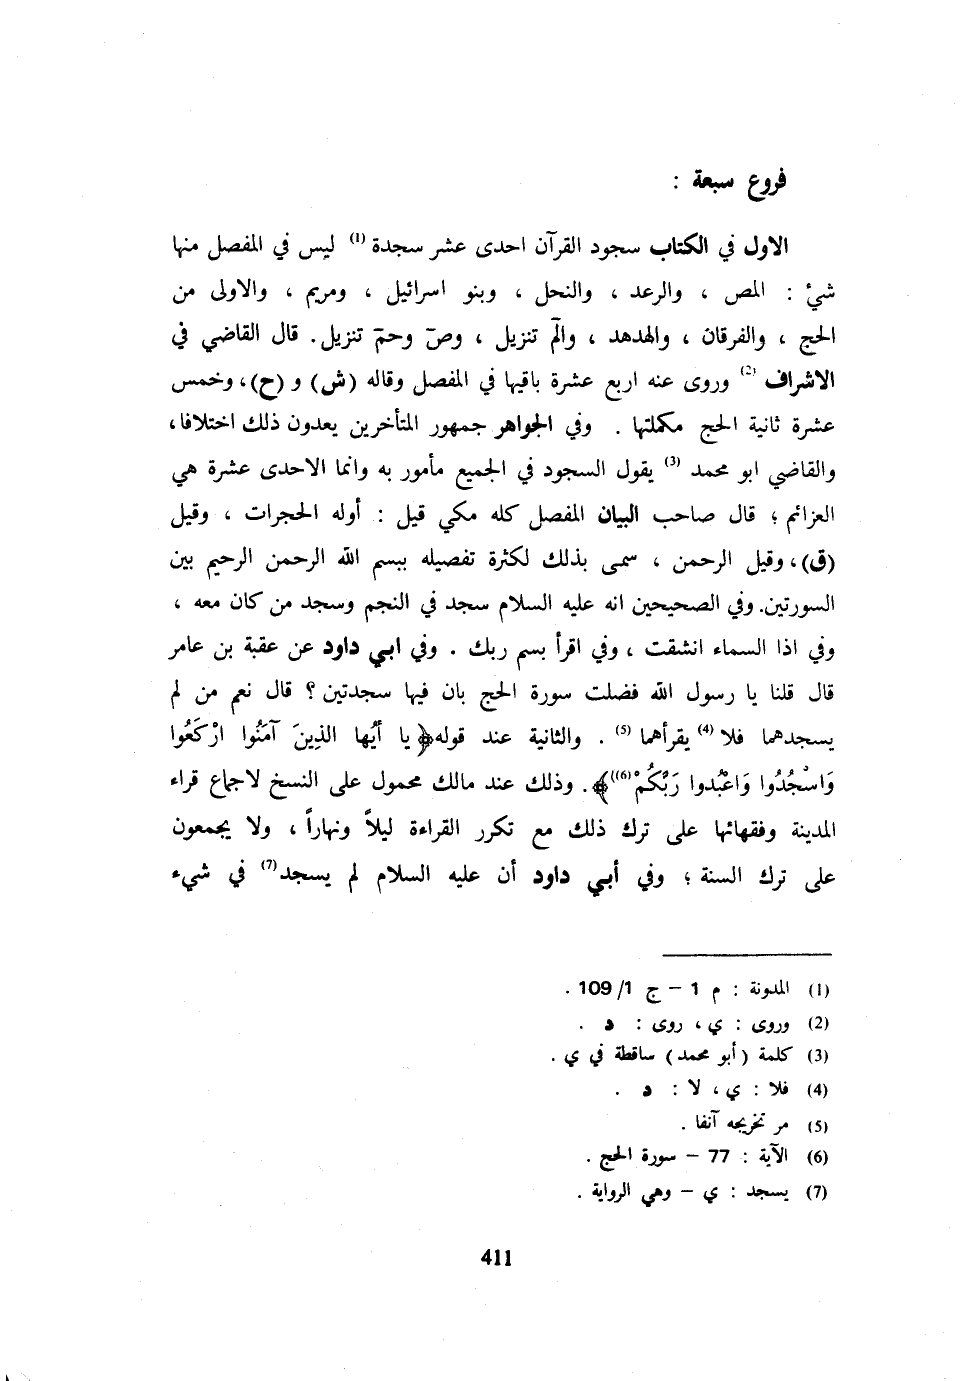 فروع سبعة :
الاول في الكتاب سجود القرآن احدى عشر سجدة (1) ليس في المفصل منها
شيءٌ : المص ، والرعد ، والنحل ، وبنو اسرائيل ، ومريم ، والاولى من
الحج ، والفرقان ، والهدهد ، وآلم تنزيل ، وصّ وحمّ تنزيل. قال القاضي في
الاشراف (2) وروى عنه اربع عشرة باقيها في المفصل وقاله (ش) و (ح)، وخمس
عشرة ثانية الحج مكملتها . وفي الجواهر جمهور المتأخرين يعدون ذلك اختلافا،
والقاضي ابو محمد (3) يقول السجود في الجميع مأمور به وانما الاحدى عشرة هي
العزائم ؛ قال صاحب البيان المفصل كله مكي قيل : أوله الحجرات ، وقيل
(ق)، وقيل الرحمن ، سمى بذلك لكثرة تفصيله ببسم الله الرحمن الرحيم بين
السورتين. وفي الصحيحين انه عليه السلام سجد في النجم وسجد من كان معه ،
وفي اذا السماء انشقت ، وفي اقرأ بسم ربك . وفي ابي داود عن عقبة بن عامر
قال قلنا يا رسول الله فضلت سورة الحج بان فيها سجدتين ؟ قال نعم من لم
يسجدهما فلا (4) يقرأهما (5) . والثانية عند قوله ﴿ يا أيُها الذِينَ آمَنُوا ارْكَعُوا
وَاسْجُدُوا وَاعْبُدوا رَبَّكُمْ (6)﴾. وذلك عند مالك محمول على النسخ لاجماع قراء
المدينة وفقهائها على ترك ذلك مع تكرر القراءة ليلاً ونهاراً ، ولا يجمعون
على ترك السنة ؛ وفي أبي داود أن عليه السلام لم يسجد (7) في شيء
(1) المدونة : م 1 – ج 1/ 109 .
(2) وروى : ي ، روى : د .
(3) كلمة (أبو محمد) ساقطة في ي .
(4) فلا : ي ، لا : د .
(5) مر تخريجه آنفا .
(6) الآية : 77 – سورة الحج .
(7) يسجد : ي – وهي الرواية .
411